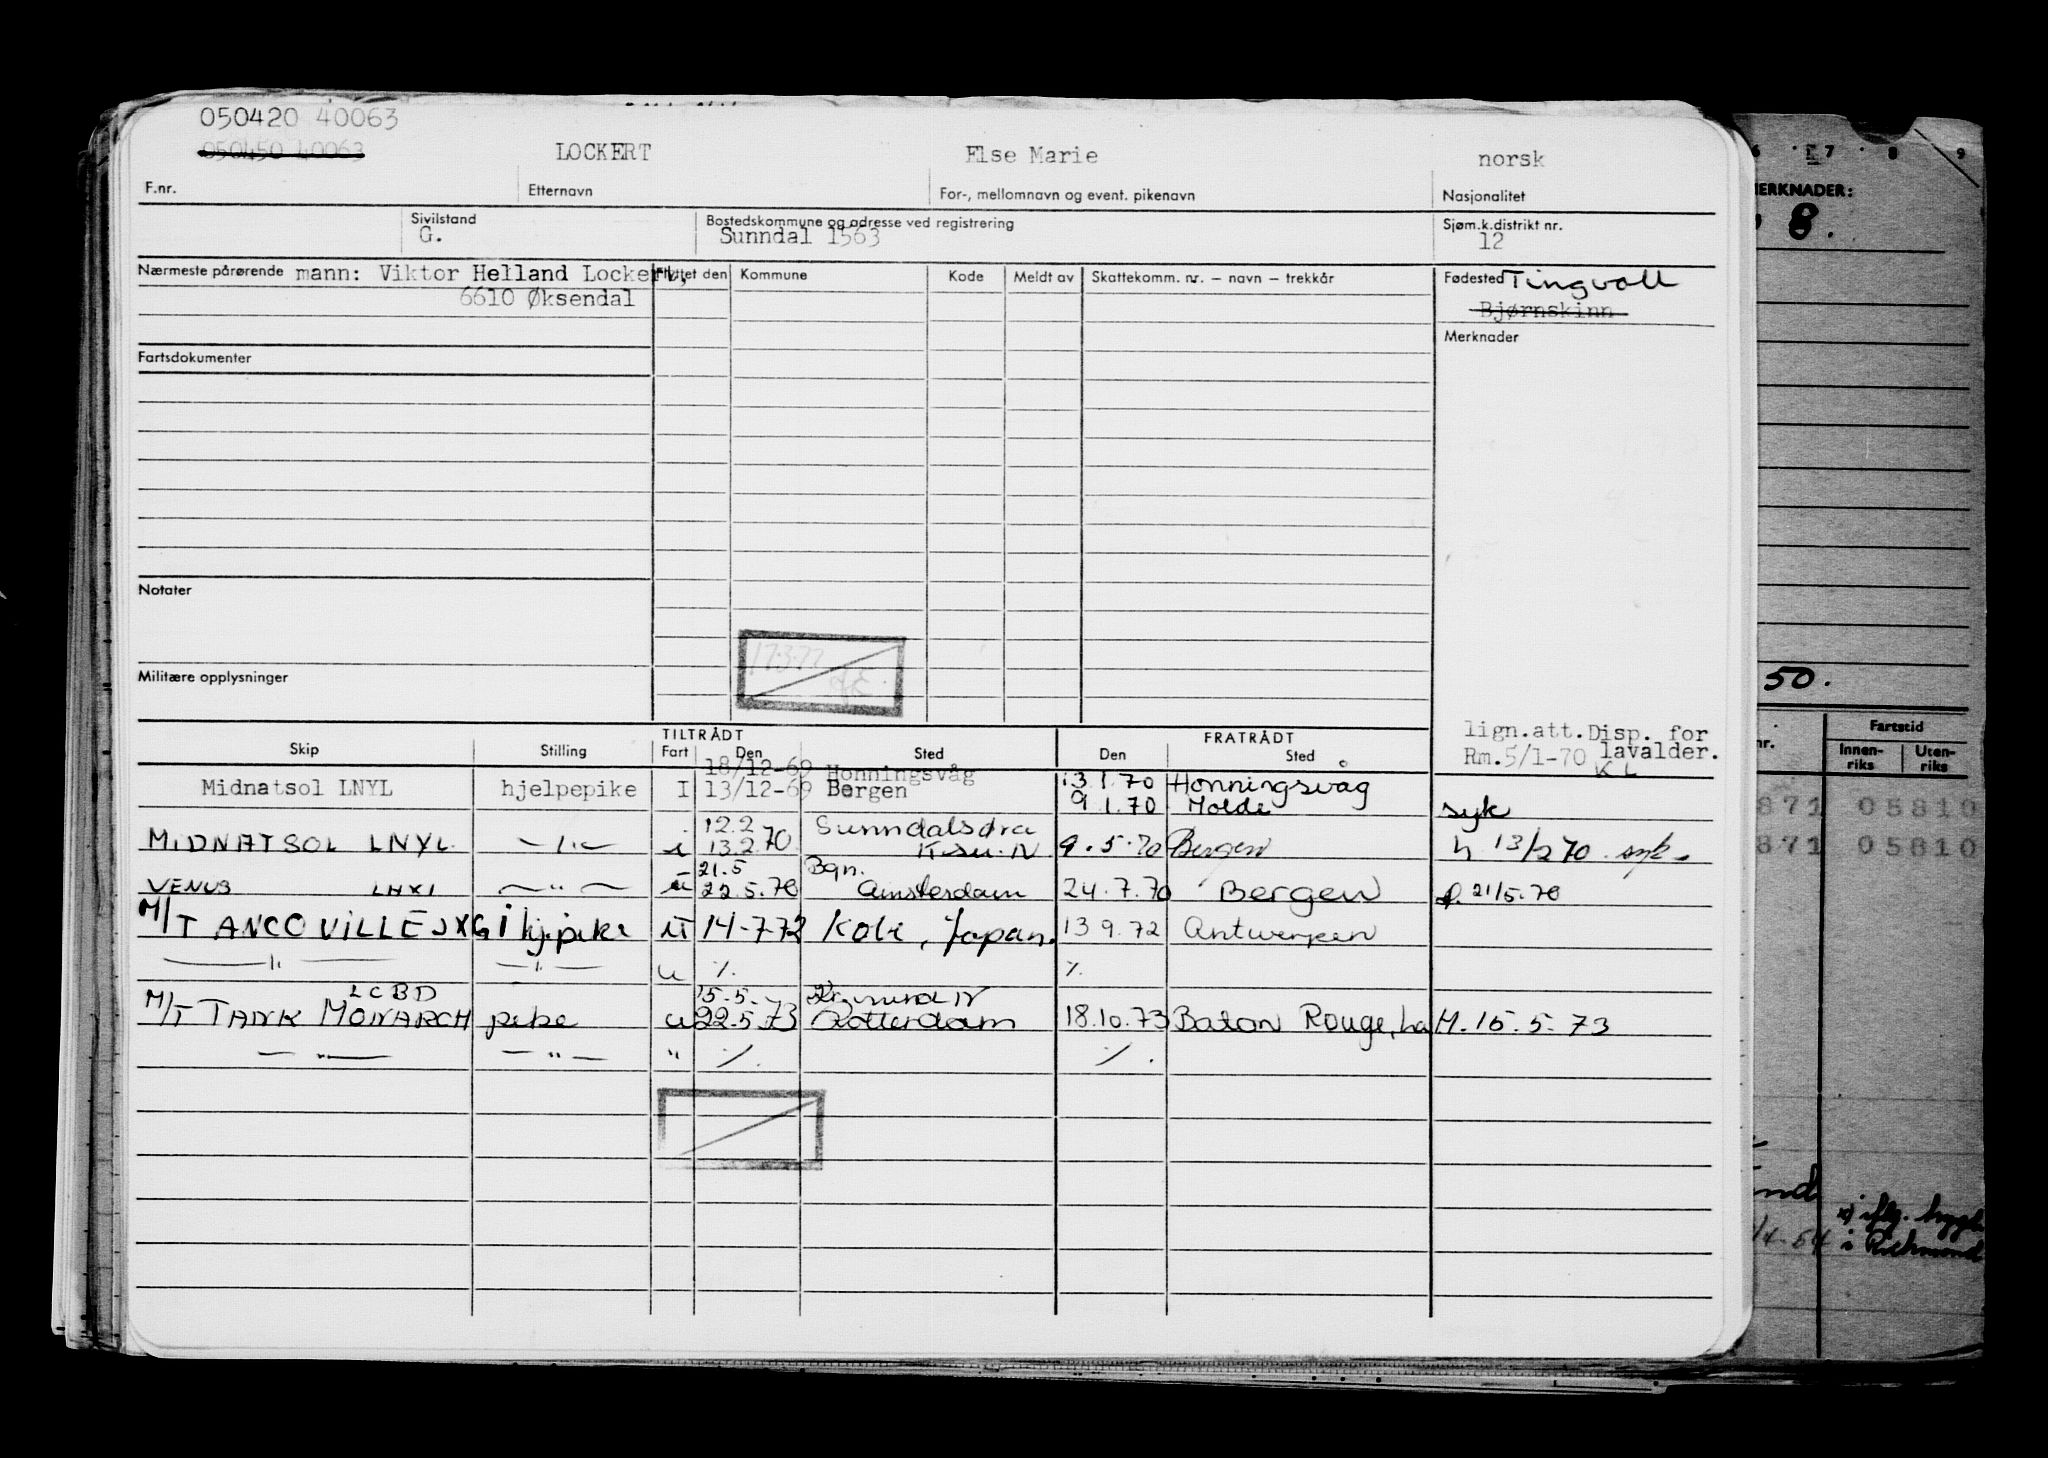 050420 40063
050450 40063 LOCKERT Else Marie norsk
F.nr. Etternavn For-, mellomnavn og event. pikenavn Nasjonalitet
Sivilstand Bostedskommune og adresse ved registrering Sjøm.k.distrikt nr.
G. Sunndal 1563 12
Nærmeste pårørende mann: Viktor Helland Lockert, Flyttet den Kommune Kode Meldt av Skattekomm. nr. – navn – trekkår Fødested Tingvoll
6610 Øksendal Bjørnskinn
Merknader
Fartsdokumenter
Notater
17.3.72
Militære opplysninger
lign.att. Disp. for
Rm. 5/1-70 lavalder.
KL
TILTRÅDT FRATRÅDT
Skip Stilling Fart Den Sted Den Sted
18/12-69 Honningsvåg 13.1.70 Honningsvåg
Midnatsol LNYL hjelpepike I 13/12-69 Bergen 9.1.70 Molde syk
12.2 Sunndalsøra
MIDNATSOL LNYL —"— i 13.2.70 K.su. N 9.5.70 Bergen h 13/2 70 syk.
21.5 Bgn.
VENUS LHXI —"— u 22.5.70 Amsterdam 24.7.70 Bergen f. 21/5.70
M/T ANCOVILLE JXGI hj.pike u 14-7-72 Kobe, Japan. 13 9.72 Antwerpen
—"— —"— u ٪ ٪
LCBD 15.5. Kr.sund N
M/T TANK MONARCH pike u 22.5.73 Rotterdam 18.10.73 Baton Rouge, La M. 15.5.73
—"— —"— " ٪ ٪.
6 7 8 9
MERKNADER:
8.
50.
nr. Fartstid
Innen-riks Uten-riks
871 05810
871 05810
x) iflg.
i Richmond